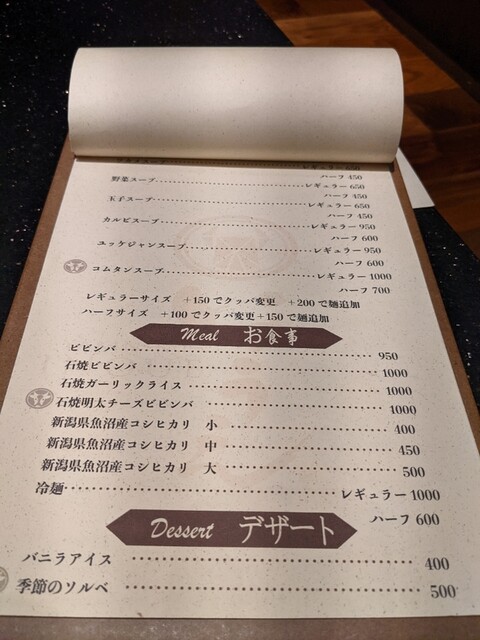 ハーフ 450
野菜スープ レギュラー 650
ハーフ 450
玉子スープ レギュラー 650
ハーフ 450
カルビスープ レギュラー 950
ハーフ 600
ユッケジャンスープ レギュラー 950
ハーフ 600
コムタンスープ レギュラー 1000
ハーフ 700
レギュラーサイズ +150でクッパ変更 +200で麺追加
ハーフサイズ +100でクッパ変更+150で麺追加
Meal お食事
ビビンバ 950
石焼ビビンバ 1000
石焼ガーリックライス 1000
石焼明太チーズビビンバ 1000
新潟県魚沼産コシヒカリ 小 400
新潟県魚沼産コシヒカリ 中 450
新潟県魚沼産コシヒカリ 大 500
冷麺 レギュラー 1000
ハーフ 600
Dessert デザート
バニラアイス 400
季節のソルベ 500